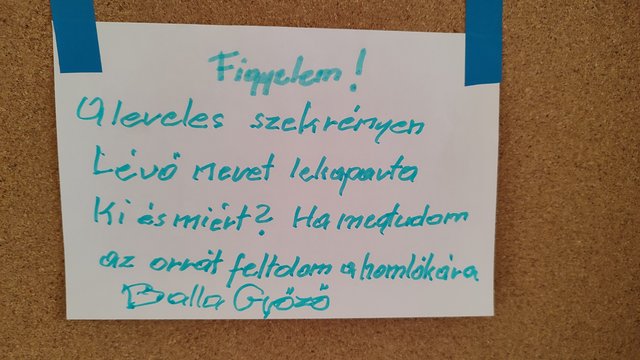 Figyelem!
A leveles szekrényen
Lévő nevet lekaparta
Ki és miért? Ha megtudom
az orrát feltolom a homlokára
Balla Győző